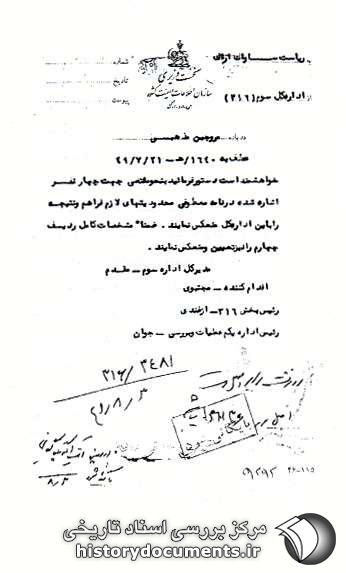 به ریاست ساواک اراک
از اداره کل سوم (۳۱۶)
نخست وزیری
سازمان اطلاعات و امنیت کشور
شماره
تاریخ
پیوست
درباره مروجین مذهبی
عطف به ۱۶۴۰/هـ - ۴۹/۷/۲۱
خواهشمند است دستور فرمائید بنحو مقتضی جهت چهار نفر
اشاره شده در نامه معطوفی محدودیتهای لازم فراهم و نتیجه
را باین اداره کل منعکس نمایند . ضمناً مشخصات کامل ردیف
چهارم را نیز تعیین و منعکس نمایند .
مدیر کل اداره سوم - مقدم
اقدام کننده - مجتبوی
رئیس بخش ۳۱۶ - ازغندی
رئیس اداره یکم عملیات و بررسی - جوان
۳۱۶/۳۴۸۱
۸/۳
۲۶-۱۱۵
مرکز بررسی اسناد تاریخی
historydocuments.ir